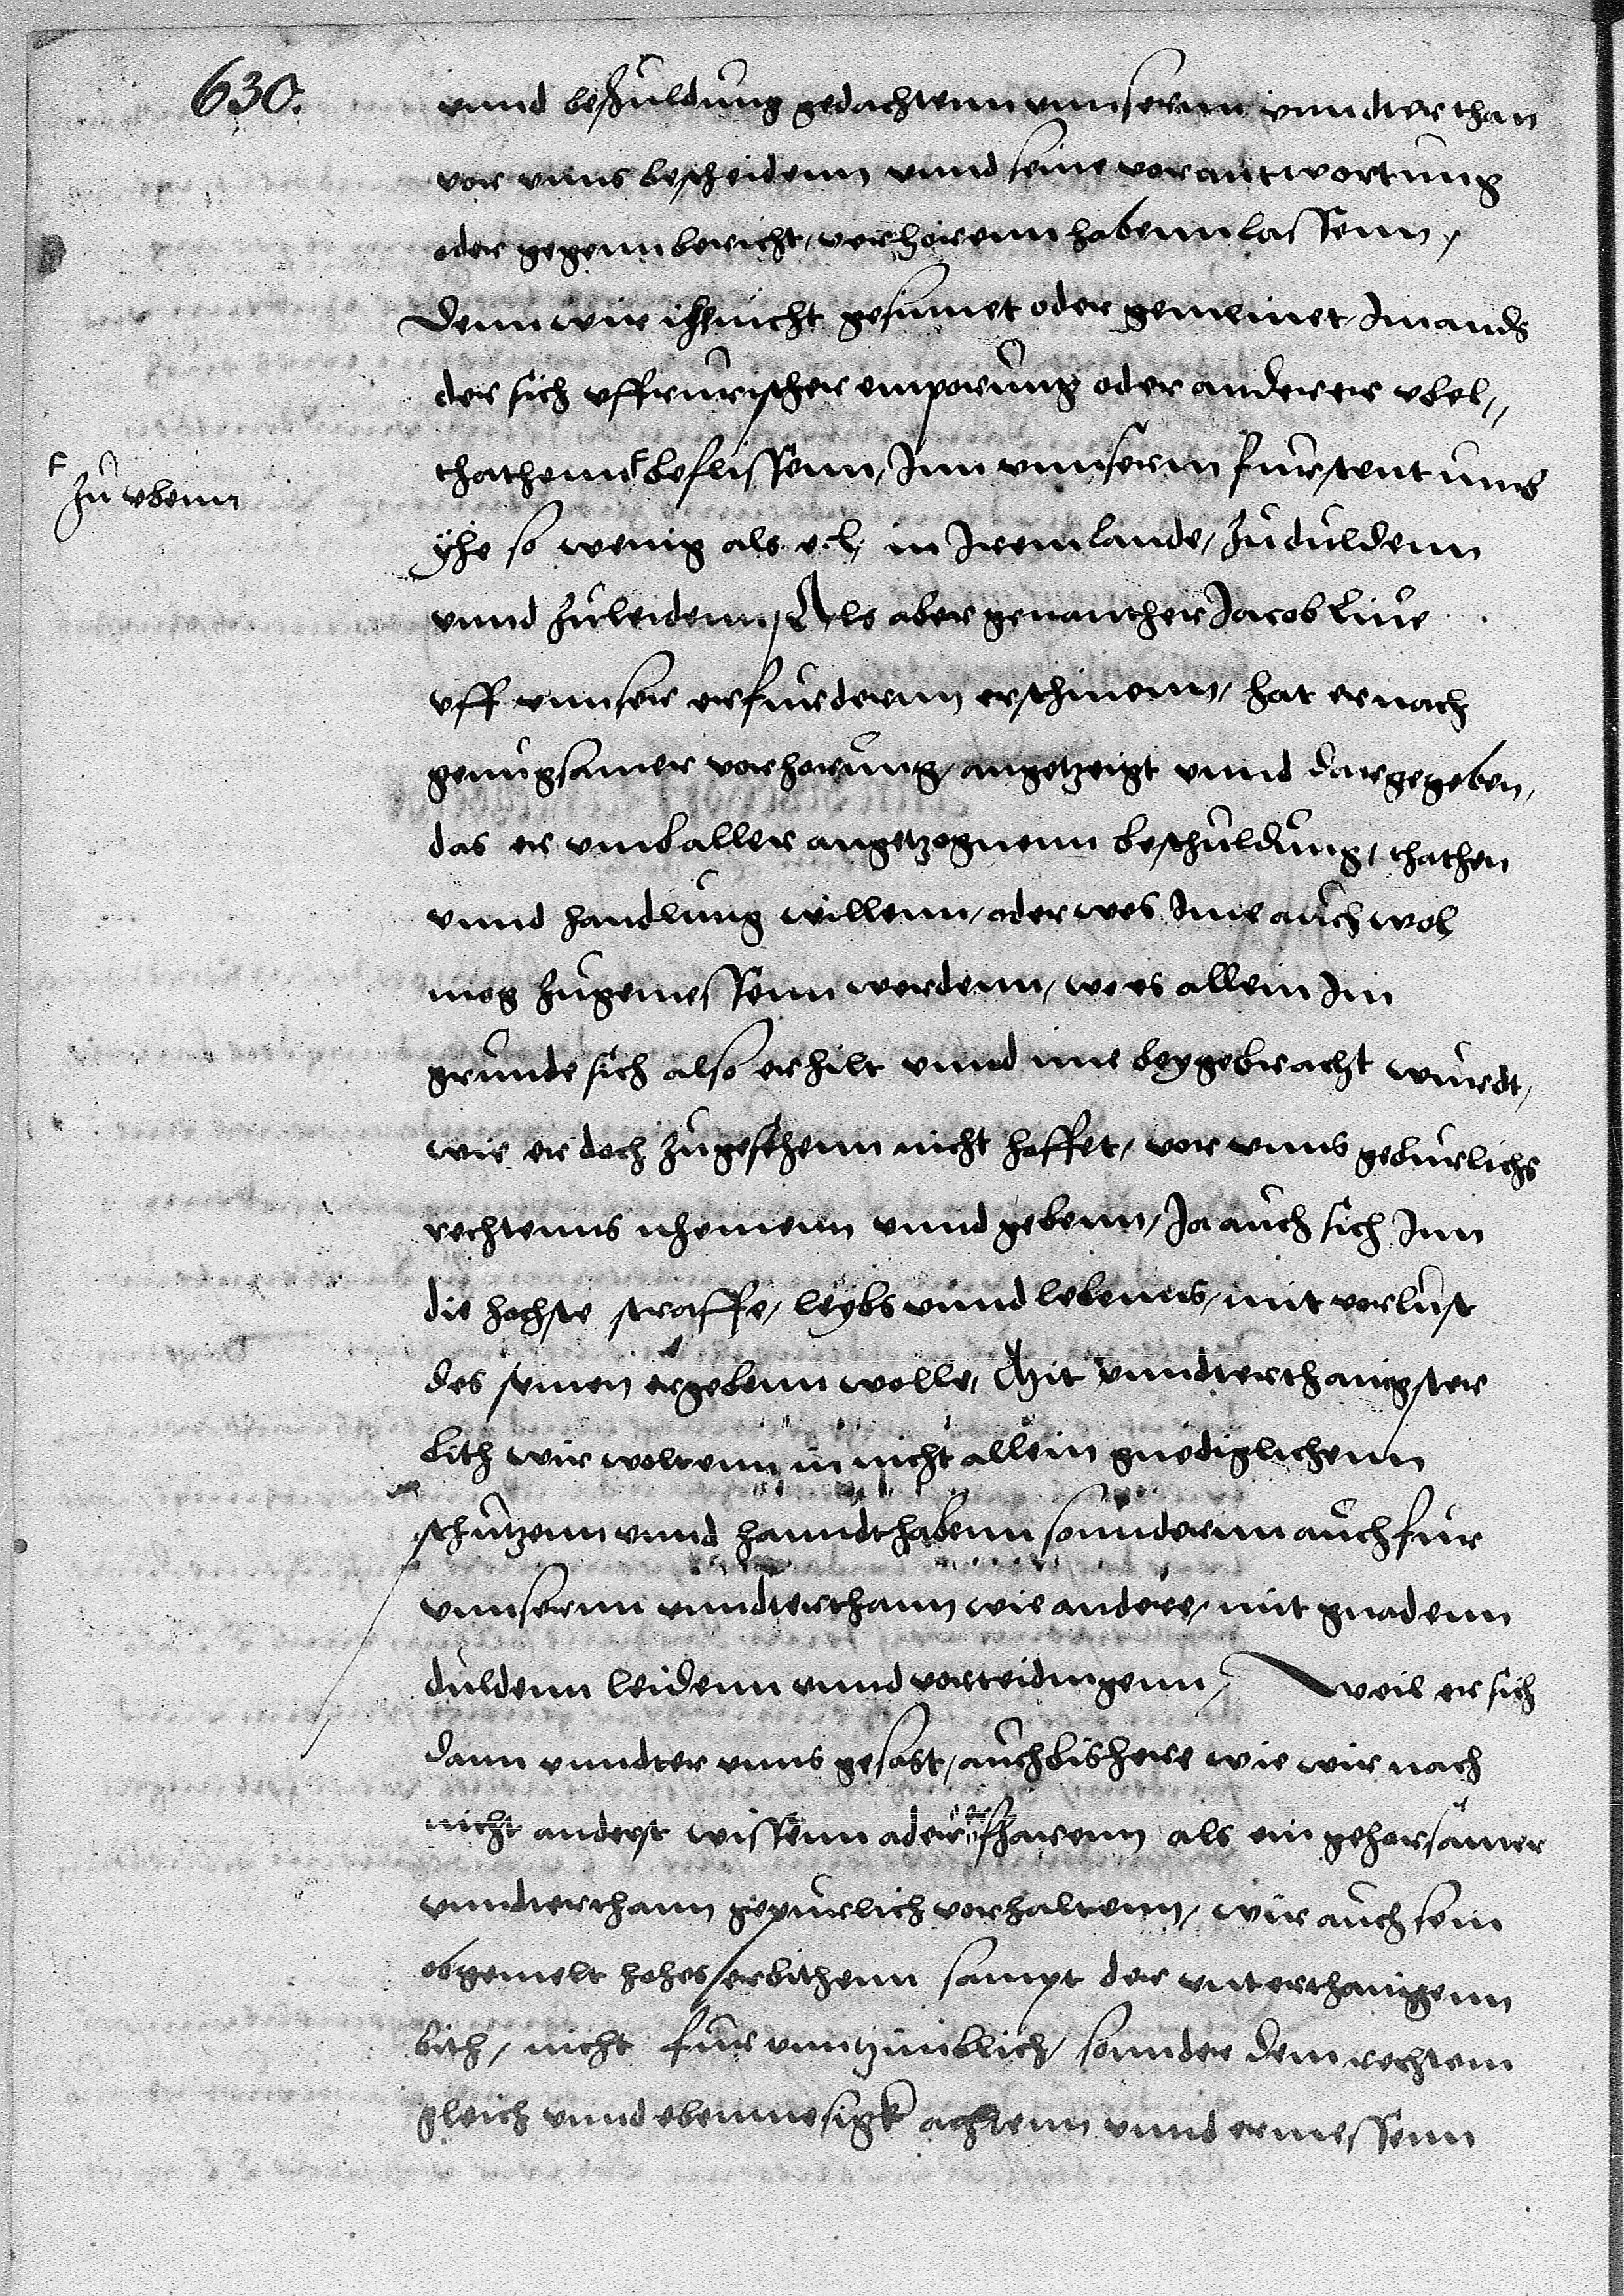 630.
vnnd beschuldung gedachtenn vnnsernn vnndterthan
vor vnns bescheidenn vnnd seine vorantwortung
oder gegennbericht, verhorenn habenn lassenn,
Denn wir nicht gesinnet oder gemeinet, Jmands
der sich vffrurischer emporung oder anderer vbel,,
thathenn beflissenn, Jnn vnnserm furstentumb
zu vbenn
yhe so wenig als e. l. in Jrem lande, zu duldenn
vnnd zuleidenn, Als aber genanther Jacob Line
vff vnnser erfurdernn erschinenn, hat er nach
genugsamer vorhorung, angetzeigt vnnd dargegeben,
das er vmb aller angetzogenenn beschuldung, thathen
vnnd handlung willenn, oder wes Jme auch wol
mog zugemessenn werdenn, wo es allein Jm
grunde sich also erhilt vnnd ime beygebracht wurdt,
wie er doch zugeschenn nicht hoffet, vor vnns geburlichs
rechtenns nhemenn vnnd gebenn, Ja auch sich Jnn
die hochste straffe, leybs vnnd lebenns, mit vorlust
des seinen ergebenn wolle, Mit vnndterthanigster
bith wir woltenn in nicht allein gnediglichenn
schutzenn vnnd hanndthabenn sonndernn auch fur
vnnsernn vnndterthann wie andere, mit gnadenn
duldenn leidenn vnnd vorteidingenn, Weil er sich
dann vnndter vnns gesast, auch bishere wie wir nach
nicht anderst wissenn ader erfharenn als ein gehorsamer
vnndterthann gepurlich vorhaltenn, wir auch sein
obgemelt hohes erbithenn sampt der vnterthanigenn
bith, nicht fur vnntzimblich, sonnder dem rechtem
gleich vnnd ebenmesigk achtenn vnnd ermessenn